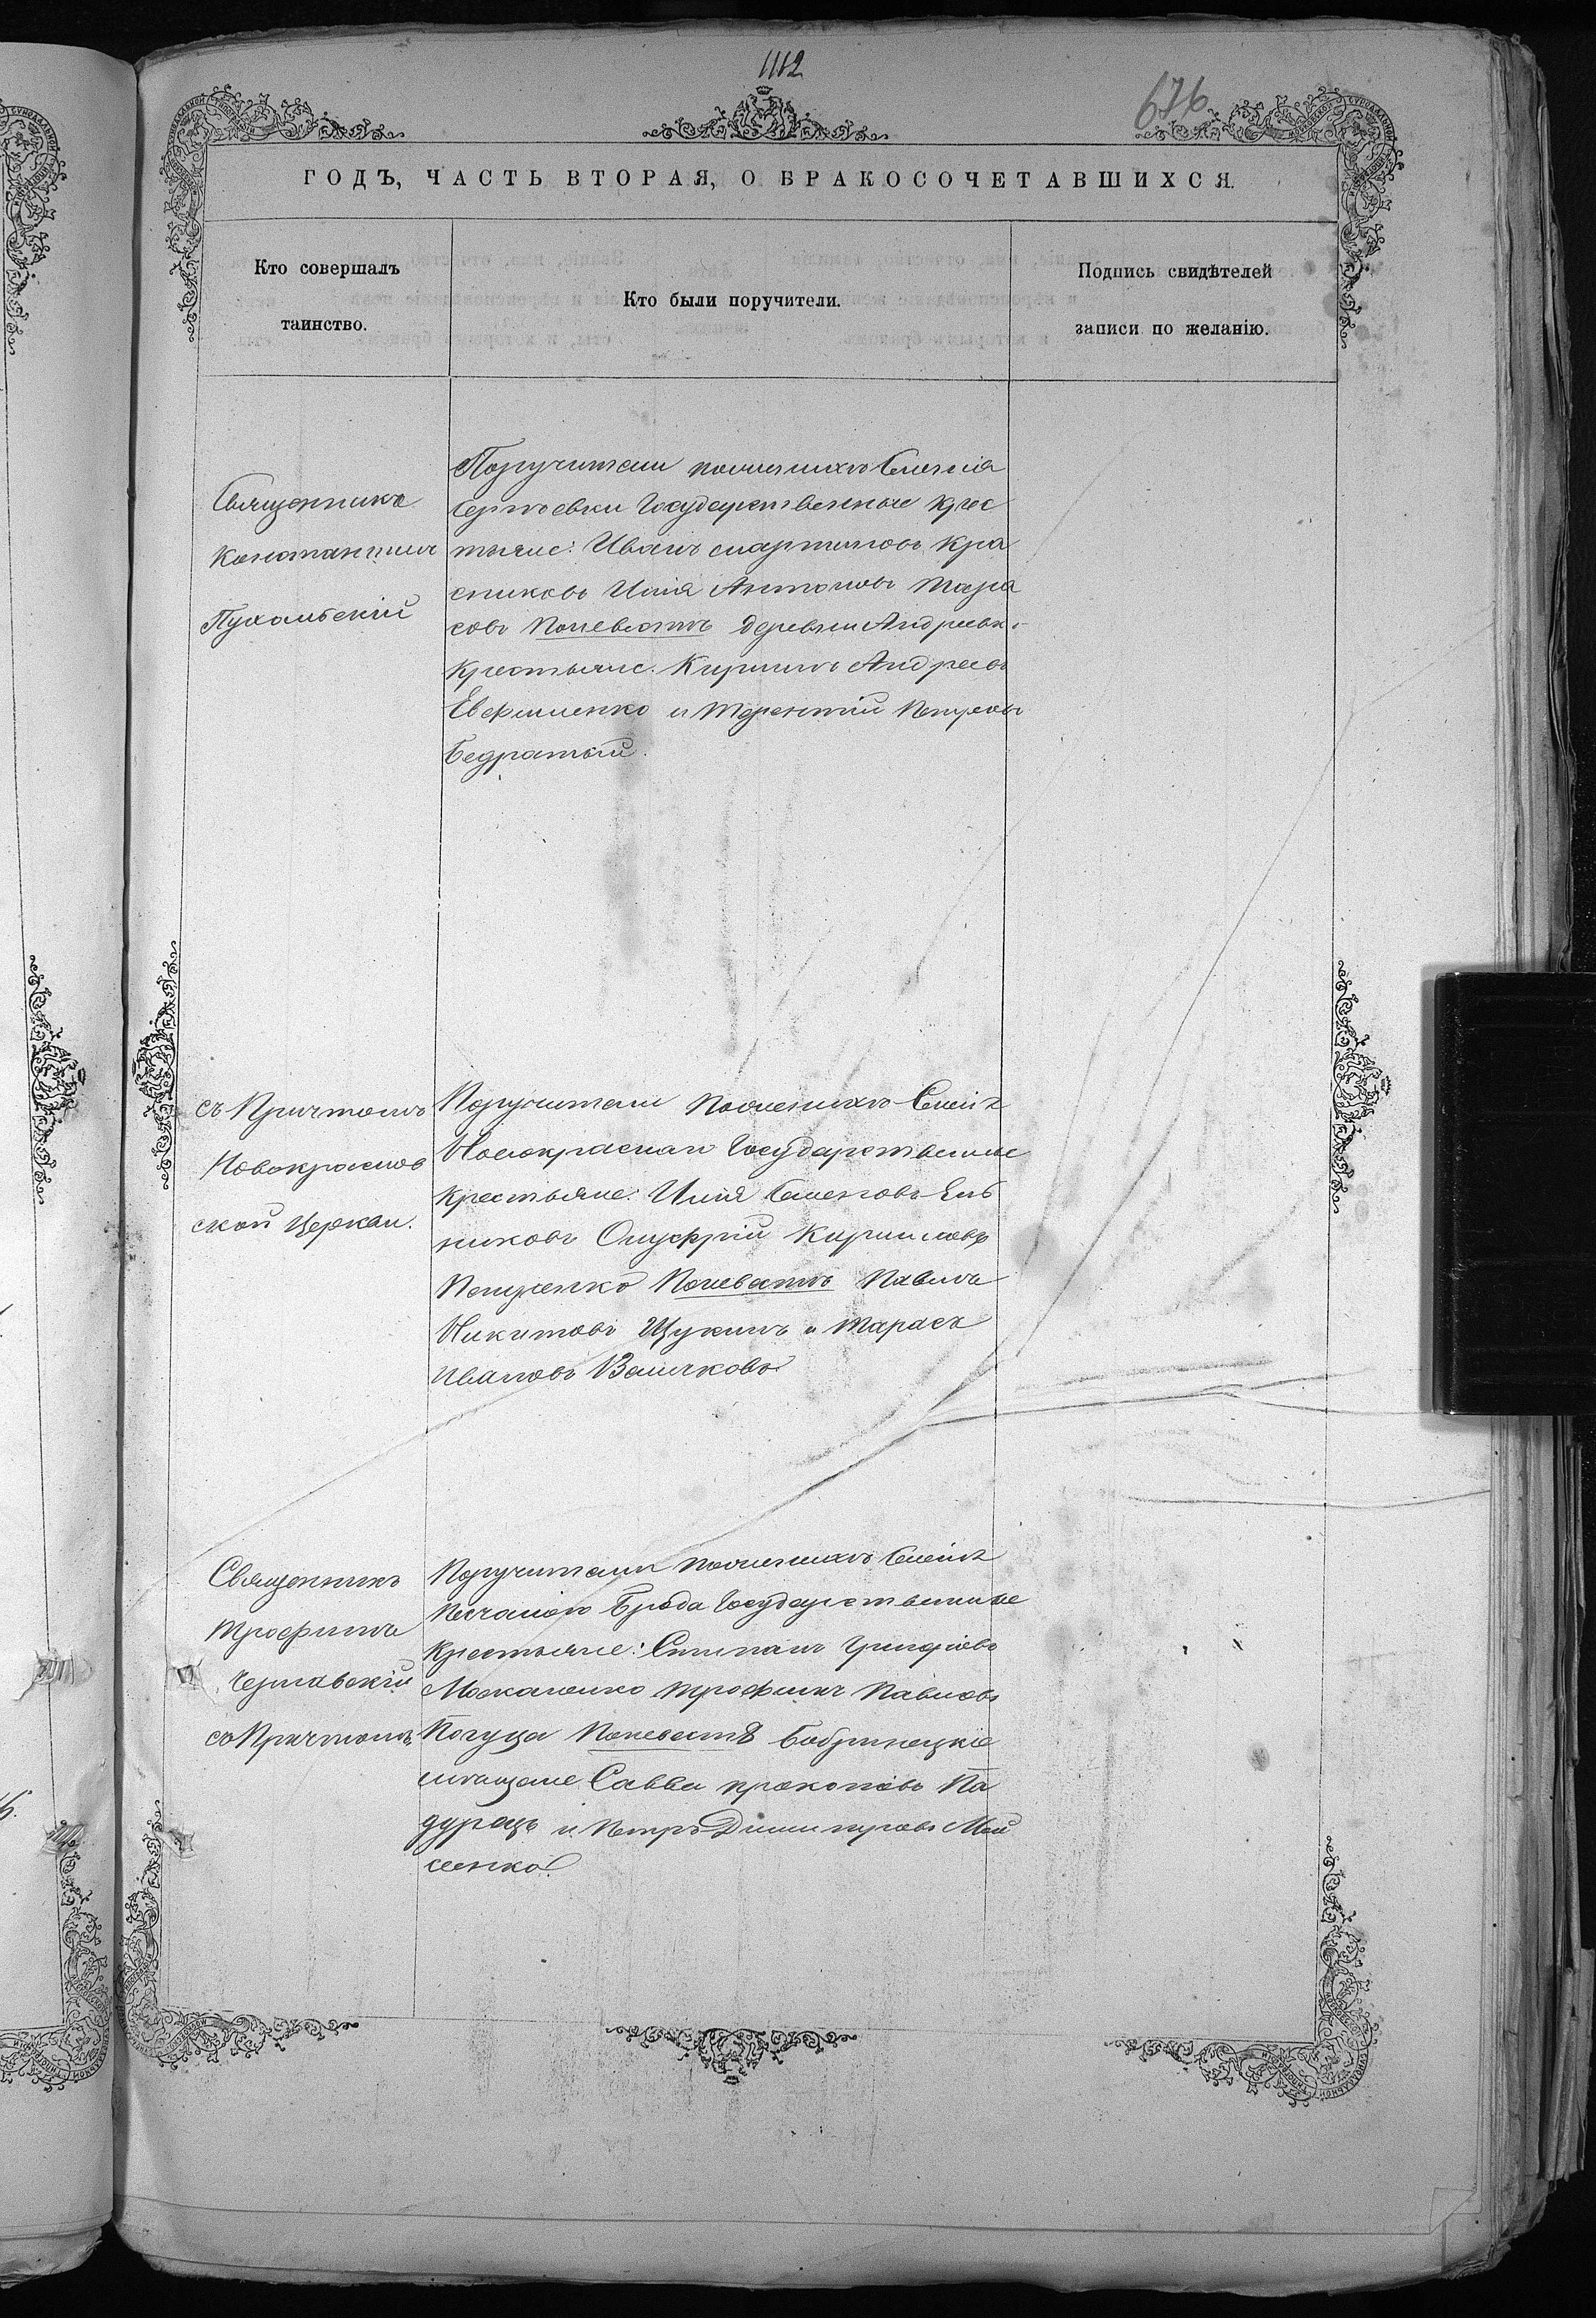 1112
676
ГОДЪ, ЧАСТЬ ВТОРАЯ, О БРАКОСОЧЕТАВШИХСЯ.
Кто совершалъ
таинство.
Кто были поручители.
Подпись свидѣтелей
записи по желанію.
Священникъ
Константинъ
Пухальскій
Поручители по женихѣ Селенія
Сергѣевки Государственные Крес
тьяне: Иванъ Мартиновъ Кра
сниковъ Илія Антоновъ Тара
совъ По невѣстѣ деревни Андреевк.
Крестьяне. Кирилъ Андреевъ
Евфименко и Терентій Петровъ
Бедратый.
съ Причтомъ
Новокраснов
ской Церкви.
Поручители По женихѣ Селенія
Новокраснаго Государственные
Крестьяне: Илія Семеновъ Ель
никовъ Онуфрій Кириловъ
Петренко По невѣстѣ Павелъ
Никитовъ Щукинъ и Тарасъ
Ивановъ Величковъ
Священникъ
Трофимъ
Чернавскій
съ Причтомъ
Поручители По женихѣ Селенія
Песчаного Брода Государственные
Крестьяне: Степанъ Григоріевъ
Москаленко Трофимъ Павловъ
Когуца По невестѣ Бобринецкіе
мѣщане Савва Прокопіевъ Па
дурецъ и Петръ Димитровъ Мой
сеенко